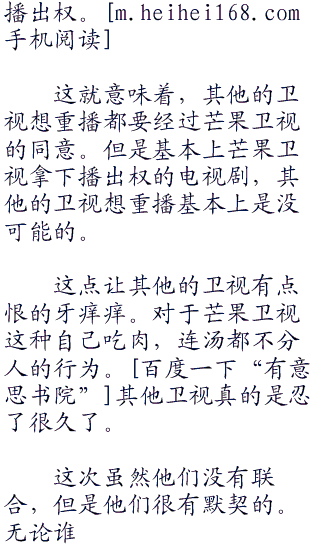 播出权。[m.heihei168.com
手机阅读]
这就意味着，其他的卫
视想重播都要经过芒果卫视
的同意。但是基本上芒果卫
视拿下播出权的电视剧，其
他的卫视想重播基本上是没
可能的。
这点让其他的卫视有点
恨的牙痒痒。对于芒果卫视
这种自己吃肉，连汤都不分
人的行为。[百度一下“有意
思书院”]其他卫视真的是忍
了很久了。
这次虽然他们没有联
合，但是他们很有默契的。
无论谁